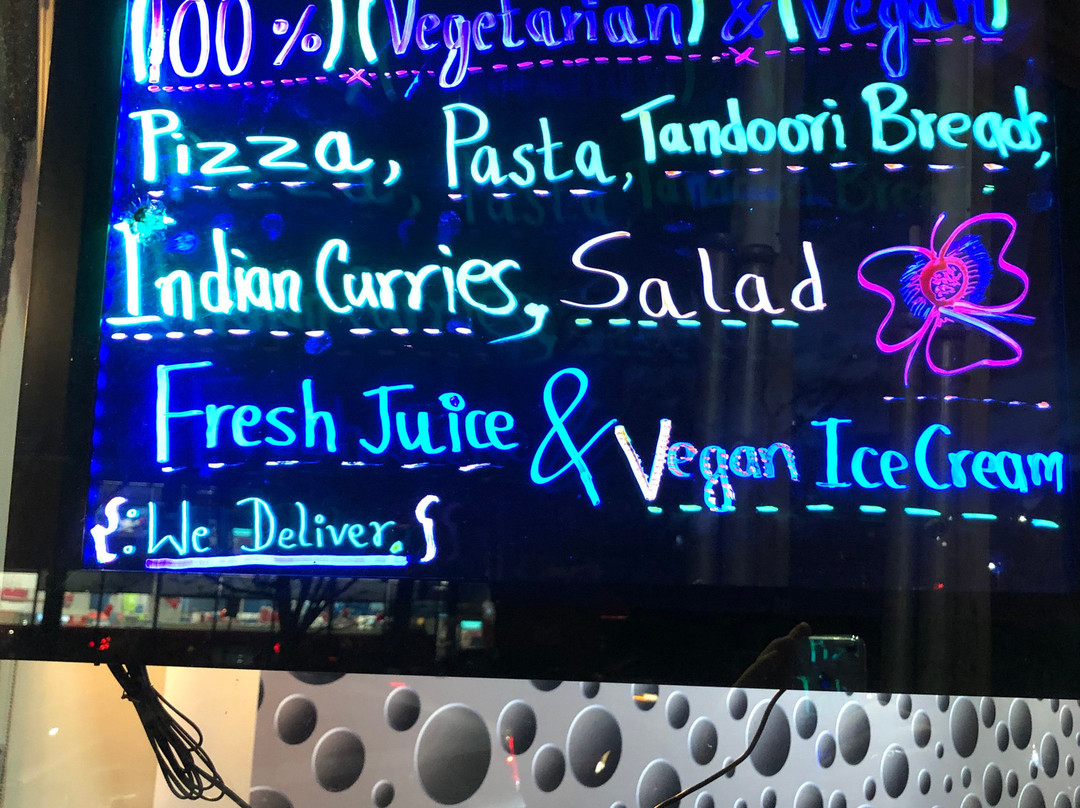 (100%) (Vegetarian) & (Vegan)
Pizza, Pasta, Tandoori Breads,
Indian Curries, Salad
Fresh Juice & Vegan Ice Cream
{:We Deliver. {